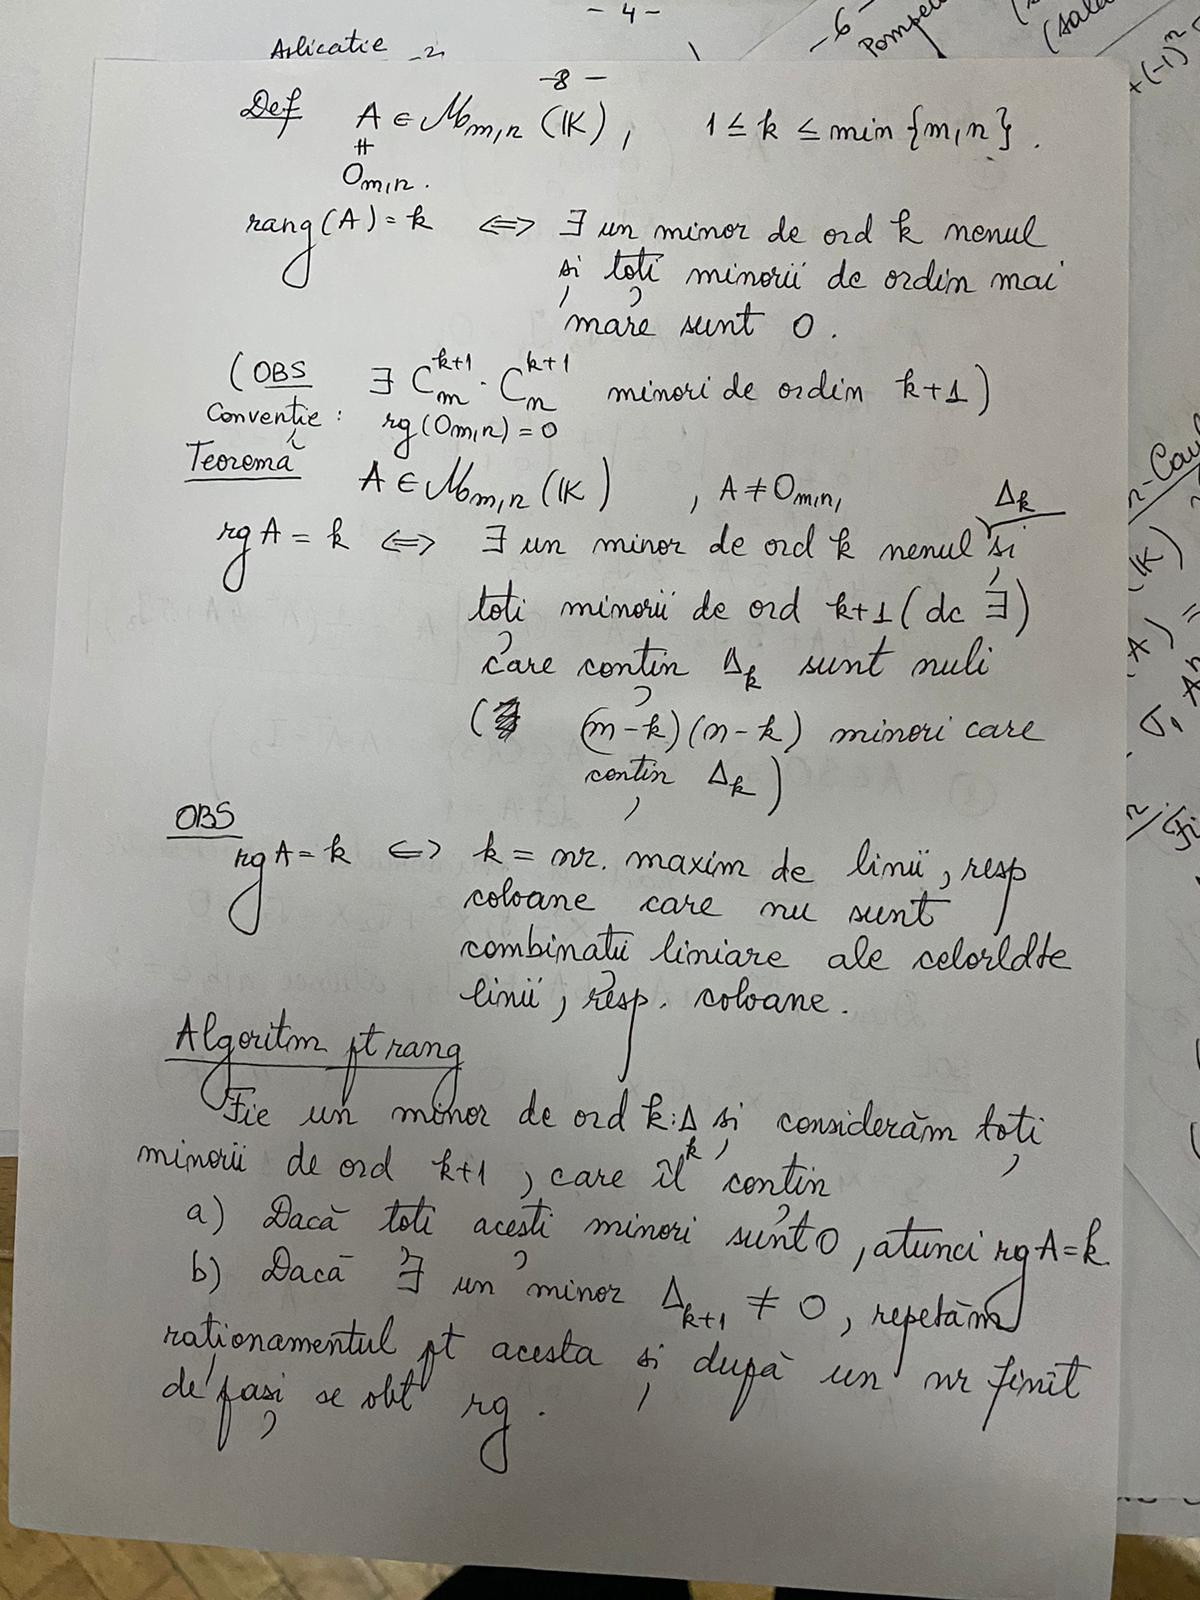 - 4 -
Aplicatie
-6-
Pompeiu
-8-
Def A ∈ M_{m,n} (K), 1 ≤ k ≤ min {m,n}.
≠
O_{m,n}.
rang(A) = k ⇔ ∃ un minor de ord k nenul
și toți minorii de ordin mai
mare sunt 0.
(OBS ∃ C_m^{k+1} · C_n^{k+1} minori de ordin k+1)
Convenție: rg(O_{m,n}) = 0
Teoremă A ∈ M_{m,n} (K), A ≠ O_{m,n}, Δ_k
rg A = k ⇔ ∃ un minor de ord k nenul și
toți minorii de ord k+1 (dc ∃)
care conțin Δ_k sunt nuli
( (m-k)(n-k) minori care
conțin Δ_k )
OBS
rg A = k ⇔ k = nr. maxim de linii, resp
coloane care nu sunt
combinații liniare ale celorldte
linii, resp. coloane.
Algoritm pt rang
Fie un minor de ord k: Δ_k și considerăm toți
minorii de ord k+1, care îl conțin
a) Dacă toți acești minori sunt 0, atunci rg A = k
b) Dacă ∃ un minor Δ_{k+1} ≠ 0, repetăm
raționamentul pt acesta și după un nr finit
de pași se obt rg.